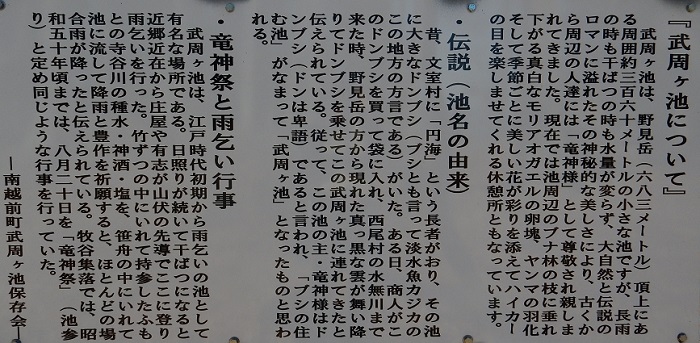 『武周ヶ池について』
武周ヶ池は、野見岳（六八三メートル）頂上にあ
る周囲約三百六十メートルの小さな池ですが、長雨
の時も干ばつの時も水量が変らず、大自然と伝説の
ロマンに溢れたその神秘的な美しさにより、古くか
ら周辺の人達には「竜神様」として尊敬され親しま
れてきました。現在では池周辺のブナ林の枝に垂れ
下がる真白なモリアオガエルの卵塊、ヤンマの羽化
そして季節ごとに美しい花が彩りを添えてハイカー
の目を楽しませてくれる休憩所ともなっています。
・伝説（池名の由来）
昔、文室村に「円海」という長者がおり、その池
に大きなドンブシ（ブシとも言って淡水魚カジカの
この地方の方言である）がいた。ある日、商人がこ
のドンブシを買って袋に入れ、西尾村の水無川まで
来た時、野見岳の方から現れた真っ黒な雲が舞い降
りてドンブシを乗せてこの武周ヶ池に連れてきたと
伝えられている。従って、この池の主・竜神様はド
ンブシ（ドンは卑語）であると言われ、「ブシの住
む池」がなまって「武周ヶ池」となったものと思わ
れる。
・竜神祭と雨乞い行事
武周ヶ池は、江戸時代初期から雨乞いの池として
有名な場所である。日照りが続いて干ばつになると
近郷近在から庄屋や有志が山伏の先導でここに登り
雨乞いを行った。竹ずつの中にいれて持参したふも
との寺谷川の種水・神酒・塩を、笹舟の中にいれて
池に流して降雨と豊作を祈願すると、ほとんどの場
合雨が降ったと伝えられている。牧谷集落では、昭
和五十年頃までは、八月二十日を「竜神祭」（池参
り）と定め同じような行事を行っていた。
―南越前町武周ヶ池保存会―